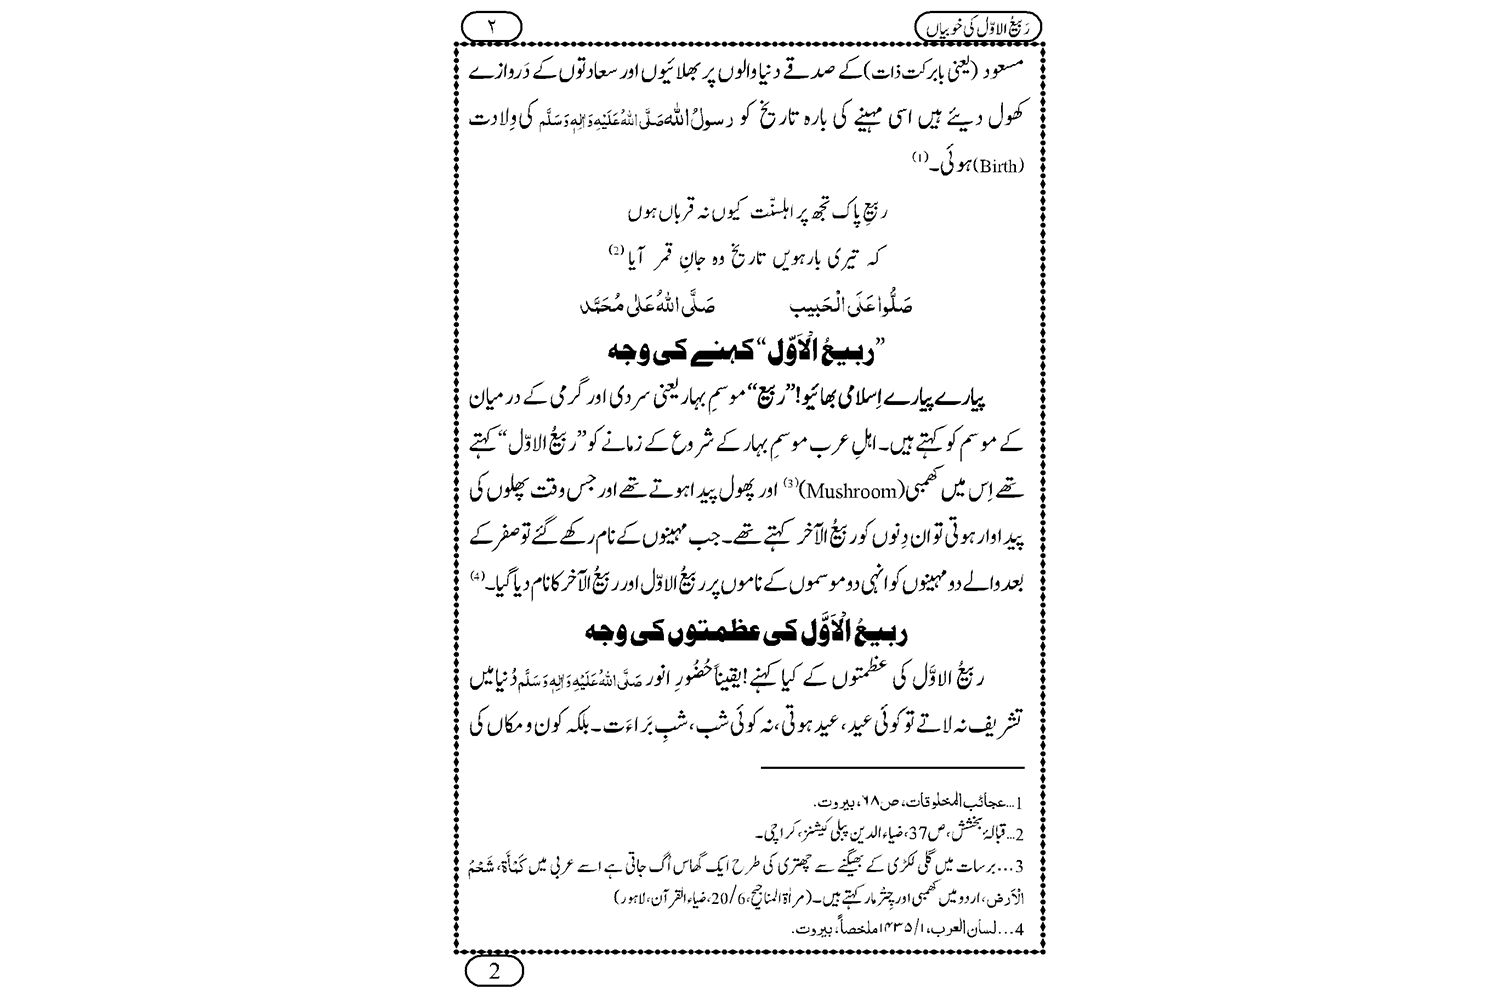 رَبیعُ الاوّل کی خوبیاں
۲
مسعود (یعنی بابرکت ذات) کے صدقے دنیا والوں پر بھلائیوں اور سعادتوں کے دَروازے
کھول دیئے ہیں اسی مہینے کی بارہ تاریخ کو رسولُ اللہ صَلَّی اللہُ عَلَیْہِ وَاٰلِہٖ وَسَلَّم کی وِلادت
(Birth) ہوئی۔(1)
ربیعِ پاک تجھ پر اہلسنّت کیوں نہ قرباں ہوں
کہ تیری بارہویں تاریخ وہ جانِ قمر آیا (2)
صَلُّوا عَلَی الْحَبِیب صَلَّی اللہُ عَلٰی مُحَمَّد
”ربیعُ الْاَوّل“ کہنے کی وجہ
پیارے پیارے اِسلامی بھائیو! ”ربیع“ موسمِ بہار یعنی سردی اور گرمی کے درمیان
کے موسم کو کہتے ہیں۔ اہلِ عرب موسمِ بہار کے شروع کے زمانے کو ”ربیعُ الاوّل“ کہتے
تھے اِس میں کھمبی (Mushroom)(3) اور پھول پیدا ہوتے تھے اور جس وقت پھلوں کی
پیداوار ہوتی تو ان دِنوں کو ربیعُ الآخر کہتے تھے۔ جب مہینوں کے نام رکھے گئے تو صفر کے
بعد والے دو مہینوں کو انہی دو موسموں کے ناموں پر ربیعُ الاوّل اور ربیعُ الآخر کا نام دیا گیا۔(4)
ربیعُ الْاَوَّل کی عظمتوں کی وجہ
ربیعُ الاوَّل کی عظمتوں کے کیا کہنے! یقیناً حُضُورِ انور صَلَّی اللہُ عَلَیْہِ وَاٰلِہٖ وَسَلَّم دُنیا میں
تشریف نہ لاتے تو کوئی عید، عید ہوتی، نہ کوئی شب، شبِ بَراءَت۔ بلکہ کون و مکاں کی
1...عجائب المخلوقات، ص٦٨، بیروت.
2...قبالۂ بخشش، ص37، ضیاء الدین پبلی کیشنز، کراچی۔
3...برسات میں گلی لکڑی کے بھیگنے سے چھتری کی طرح ایک گھاس اُگ جاتی ہے اسے عربی میں کَمْأَۃ، شَحْمُ
الْاَرض، اردو میں کھمبی اور چِتر مار کہتے ہیں۔ (مراٰۃ المناجیح، 20/6، ضیاء القرآن، لاہور)
4...لسان العرب، ١/١٤٣٥ ملخصاً، بیروت.
2